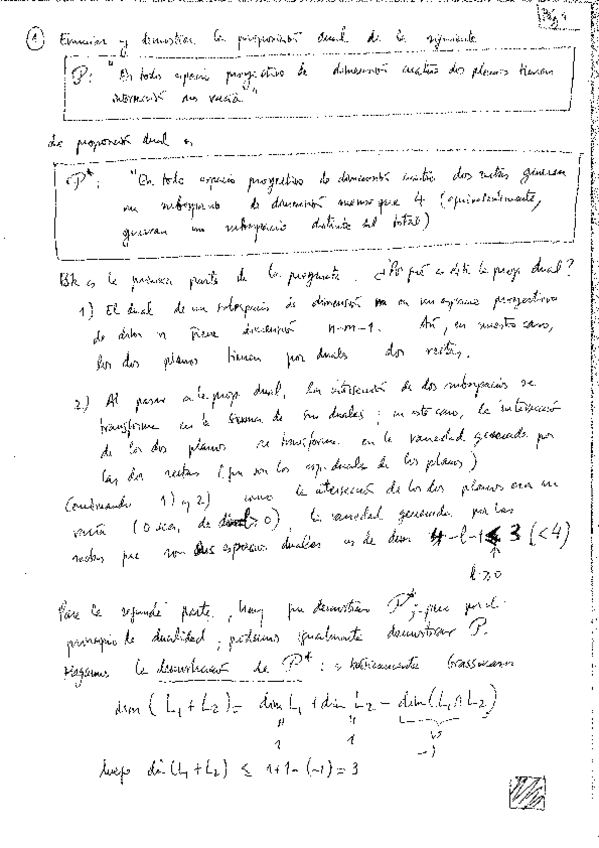 ① Enunciar y demostrar la proposición dual de la siguiente
P: "En todo espacio proyectivo de dimensión cuatro dos planos tienen
intersección no vacía"
La proposición dual es
P*: "En todo espacio proyectivo de dimensión cuatro dos rectas generan
un subespacio de dimensión menor que 4 (equivalentemente,
generan un subespacio distinto del total)
Esta es la primera parte de la pregunta. ¿Por qué es ésta la prop dual?
1) El dual de un subespacio de dimensión m en un espacio proyectivo
de dim n tiene dimensión n-m-1. Así, en nuestro caso,
los dos planos tienen por duales dos rectas.
2) Al pasar a la prop dual, la intersección de dos subespacios se
transforma en la suma de sus duales; en este caso, la intersección
de los dos planos se transforma en la variedad generada por
las dos rectas (que son los esp. duales de los planos)
Combinando 1) y 2) como la intersección de los dos planos era no
vacía (o sea, de dim l ≥ 0), la variedad generada por las
rectas que son sus espacios duales es de dim 4-l-1 ≤ 3 (<4)
l ≥ 0
Para la segunda parte, hay que demostrar P*, que por el
principio de dualidad, podemos igualmente demostrar P.
Hagamos la demostración de P*: es básicamente Grassmann
dim (L₁ + L₂) = dim L₁ + dim L₂ - dim (L₁ ∩ L₂)
1 1 -1
luego dim (L₁ + L₂) ≤ 1+1-(-1) = 3